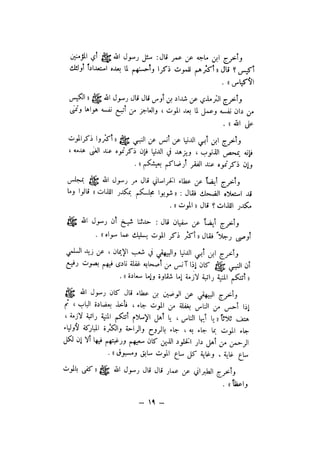 وأخرج ابن ماجه عن عمر قال: سئل رسول الله ﷺ أي المؤمنين
أكيس؟ قال «أكثرهم للموت ذكرا وأحسنهم لما بعده استعداداً أولئك
أكيس».
وأخرج الترمذي عن شداد بن أوس قال قال رسول الله ﷺ «الكيس
من دان نفسه وعمل لما بعد الموت، والعاجز من أتبع نفسه هواها وتمنى
على الله».
وأخرج ابن أبي الدنيا عن أنس عن النبي ﷺ «أكثروا ذكر الموت
فإنه يمحص الذنوب، ويزهد في الدنيا فإن ذكرتموه عند الغنى هدمه،
وإن ذكرتموه عند الفقر أرضاكم بعيشكم».
وأخرج أيضاً عن عطاء الخراساني قال مر رسول الله ﷺ بمجلس
قد استعلاه الضحك فقال: «شوبوا مجلسكم بمكدر اللذات» قالوا وما
مكدر اللذات؟ قال «الموت».
وأخرج أيضاً عن سفيان قال: حدثنا شيخ أن رسول الله ﷺ
أوصى رجلاً فقال «أكثر ذكر الموت يسليك عما سواه».
وأخرج ابن أبي الدنيا والبيهقي في شعب الإيمان، عن زيد السلمي
أن النبي ﷺ كان إذا آنس من أصحابه غفلة نادى فيهم بصوت رفيع
«أتتكم المنية راتبة لازمة إما شقاوة وإما سعادة».
وأخرج البيهقي عن الوضين بن عطاء قال كان رسول الله ﷺ
إذا أحس من الناس بغفلة من الموت جاء، فأخذ بعضادة الباب، ثم
هتف ثلاثاً «يا أيها الناس، يا أهل الإسلام أتتكم المنية راتبة لازمة،
جاء الموت بما جاء به، جاء بالروح والراحة والكثرة المباركة لأولياء
الرحمن من أهل دار الخلود الذين كان سعيهم ورغبتهم فيها ألا إن لكل
ساع غاية، وغاية كل ساع الموت سابق ومسبوق».
وأخرج الطبراني عن عمار قال قال رسول الله ﷺ «كفى بالموت
واعظاً».
- ١٩ -